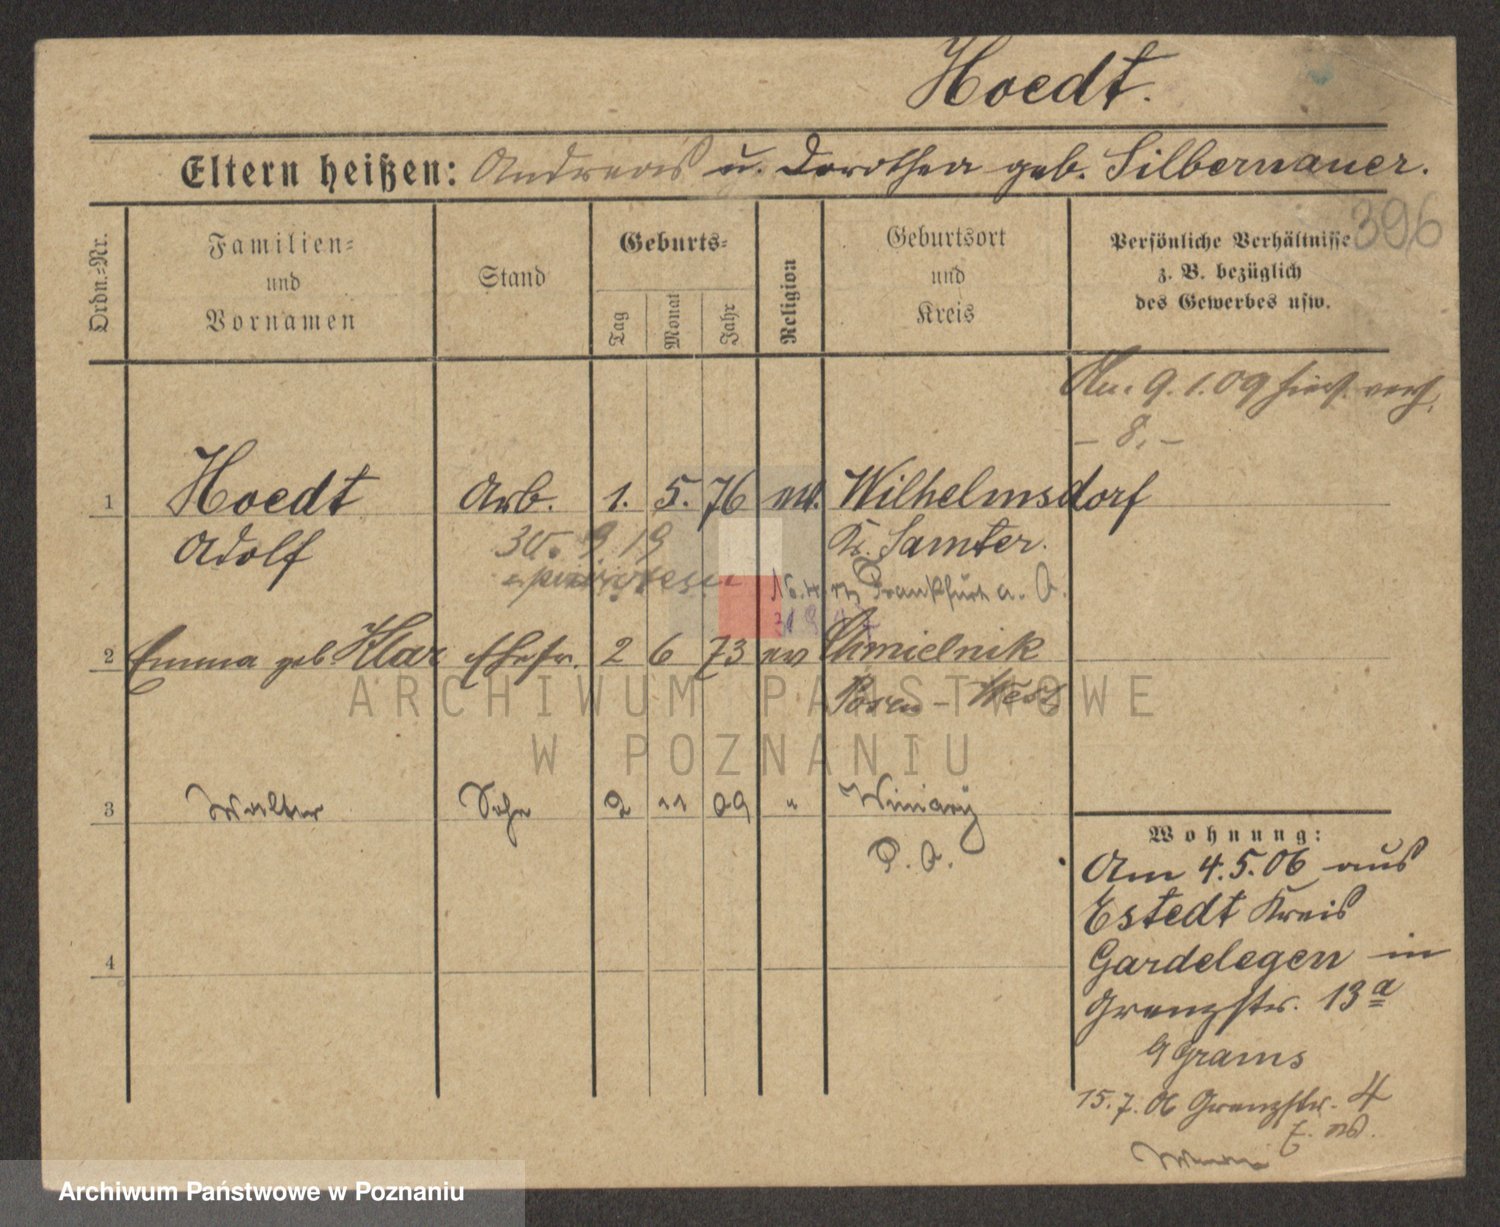 Hoedt.
Eltern heißen: Andreas u. Dorothea geb. Silbernauer.
396
Ordn.-Nr.
Familien-
und
Vornamen
Stand
Geburts-
Tag
Monat
Jahr
Religion
Geburtsort
und
Kreis
Persönliche Verhältnisse
z. B. bezüglich
des Gewerbes usw.
9.1.09
– 8, –
1 Hoedt Arb. 1. 5. 76 ev. Wilhelmsdorf
Adolf 30. 9. 19 Kr. Samter.
Frankfurt a. O.
2 Emma geb Klar Ehefr. 2 6 73 ev Chmielnik
Posen-West
3 Walter Sohn 2 11 09 " Winiary
P. O.
4
Wohnung:
Am 4.5.06 aus
Estedt Kreis
Gardelegen in
Grenzstr. 13a
Grams
15.7.06 Grenzstr. 4
ARCHIWUM PAŃSTWOWE
W POZNANIU
Archiwum Państwowe w Poznaniu